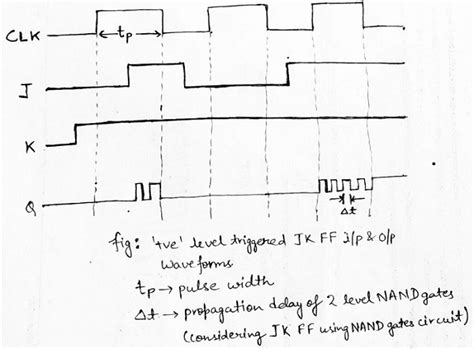 CLK
tp
J
K
Q
Δt
fig: '+ve' level triggered JK FF i/p & o/p
waveforms
tp → pulse width
Δt → propagation delay of 2 level NAND gates
(considering JK FF using NAND gates circuit)